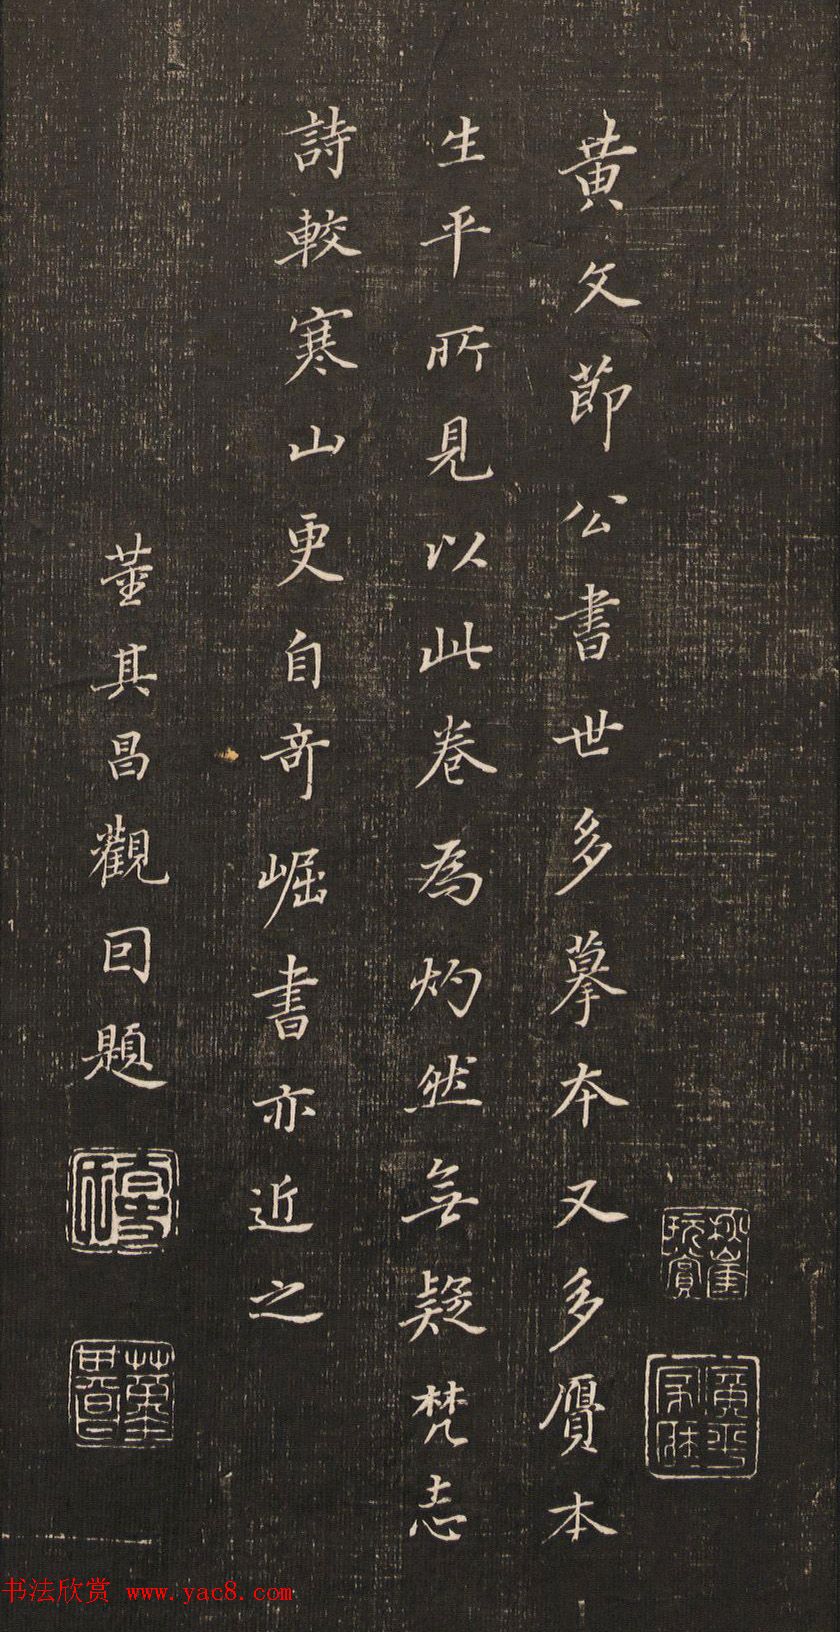 黄文節公書世多摹本又多贋本
生平所見以此卷為灼然無疑梵志
詩較寒山更自奇崛書亦近之
董其昌觀回題
秋崖玩賞
書法欣赏 www.yac8.com